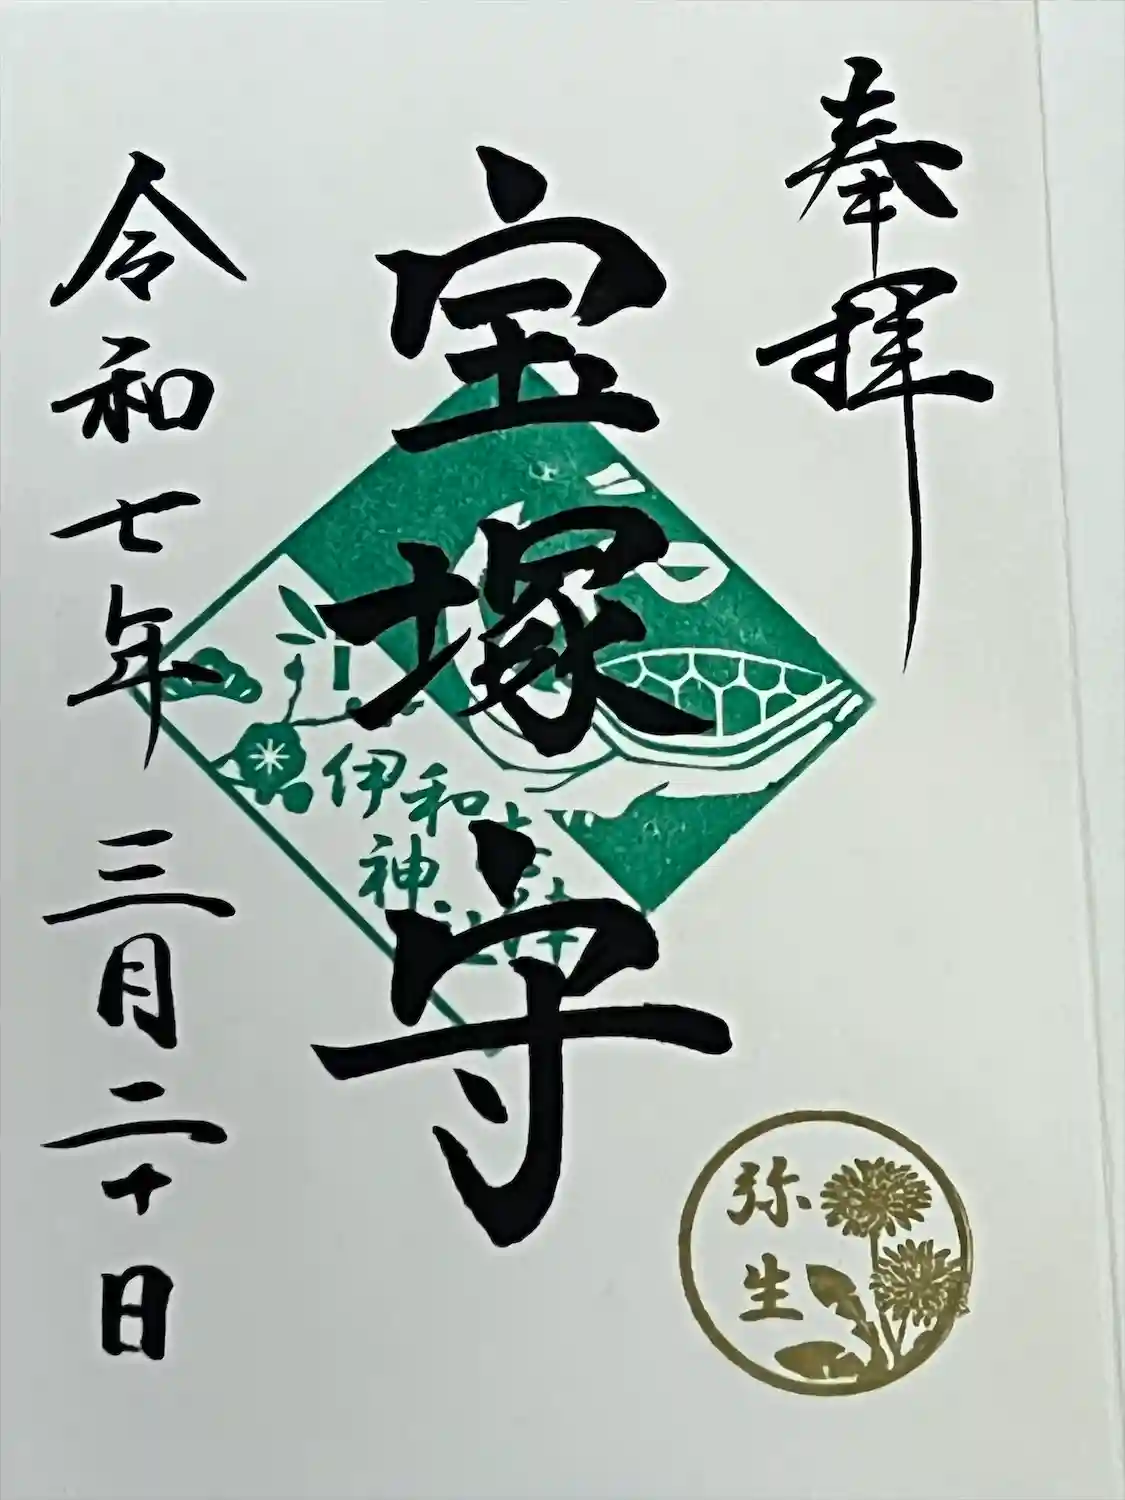 奉拝
宝塚守
伊和志津
神社
令和七年三月二十日
弥生